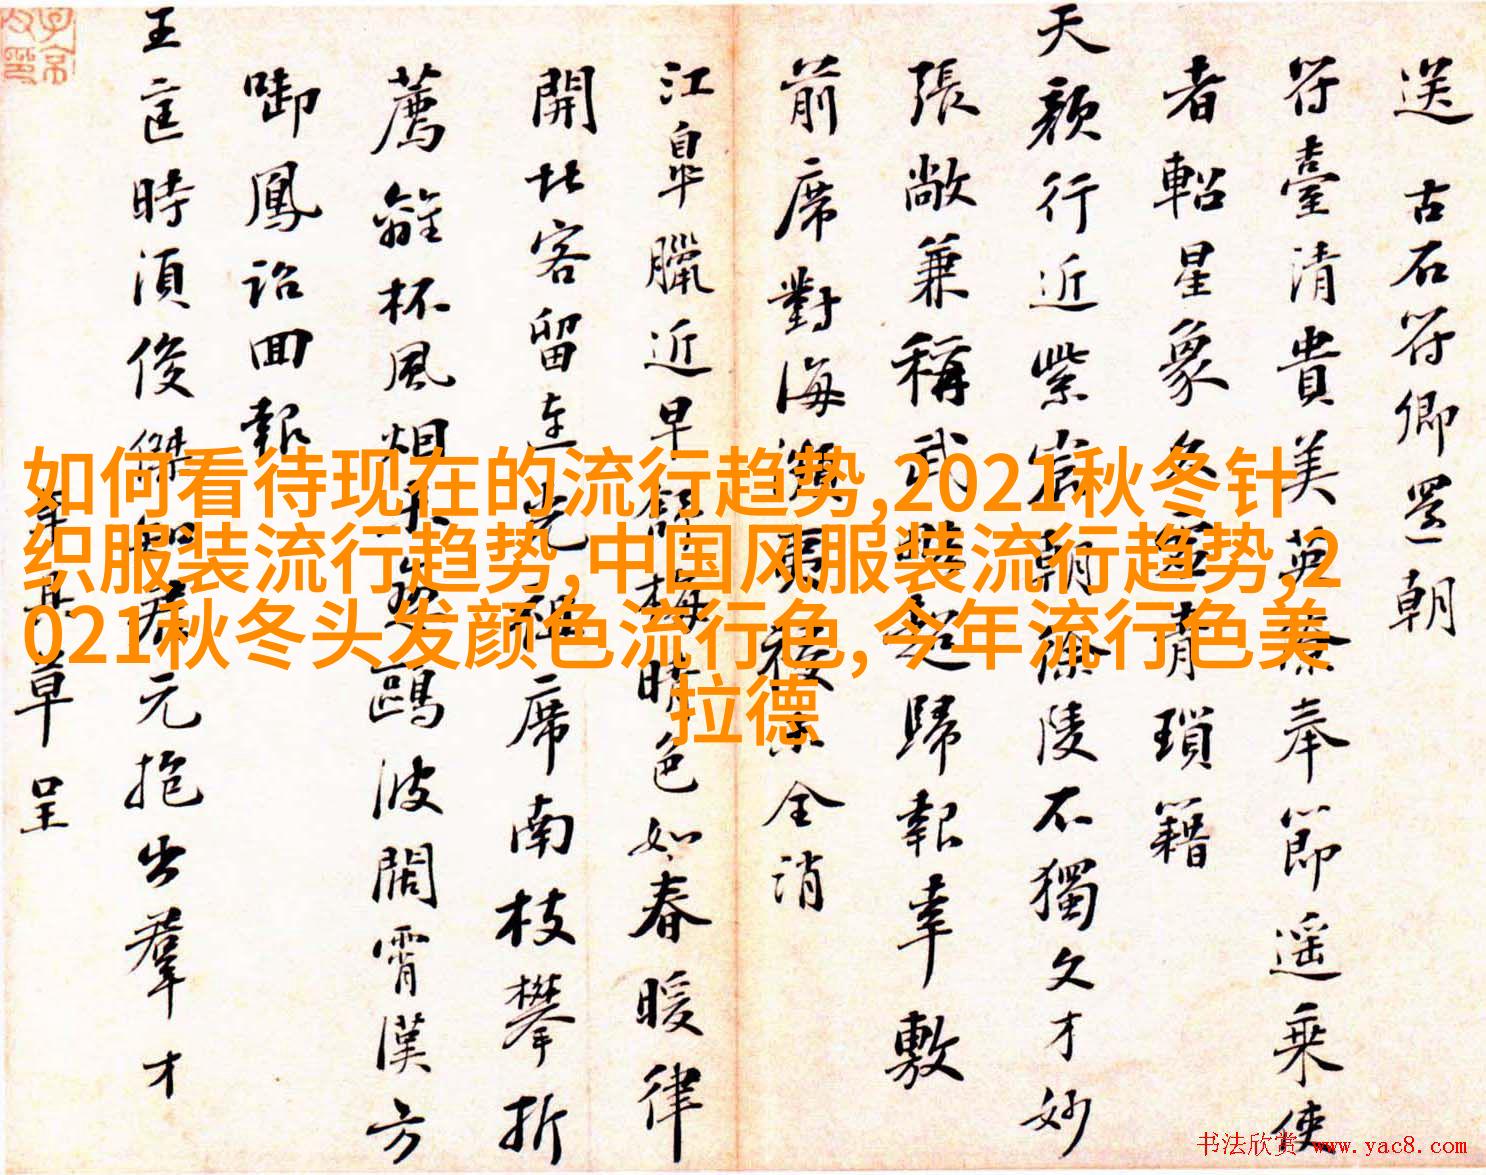 送古石符卿還朝
符臺清貴美英僚奉節遥乘使
者軺星象久宣青瑣籍
天顔行近紫宸朝徐陵不獨文才妙
張敞兼稱武
超歸報幸敷
前席對海
全消
江皐臘近早
梅晴色如春暖律
開北客留連
席南枝攀折
薦
杯風烟
鷗波闊霄漢方
啣鳳詔回報
王
時須俊傑知君元抱出羣才
草呈
如何看待现在的流行趋势,2021秋冬针
织服装流行趋势,中国风服装流行趋势,2
021秋冬头发颜色流行色,今年流行色美
拉德
书法欣赏 www.yac8.com